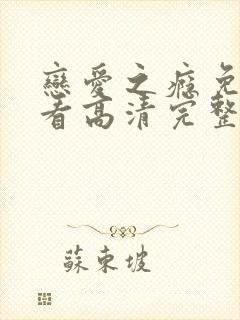 戀愛之癮免
看高清完整
蘇東坡